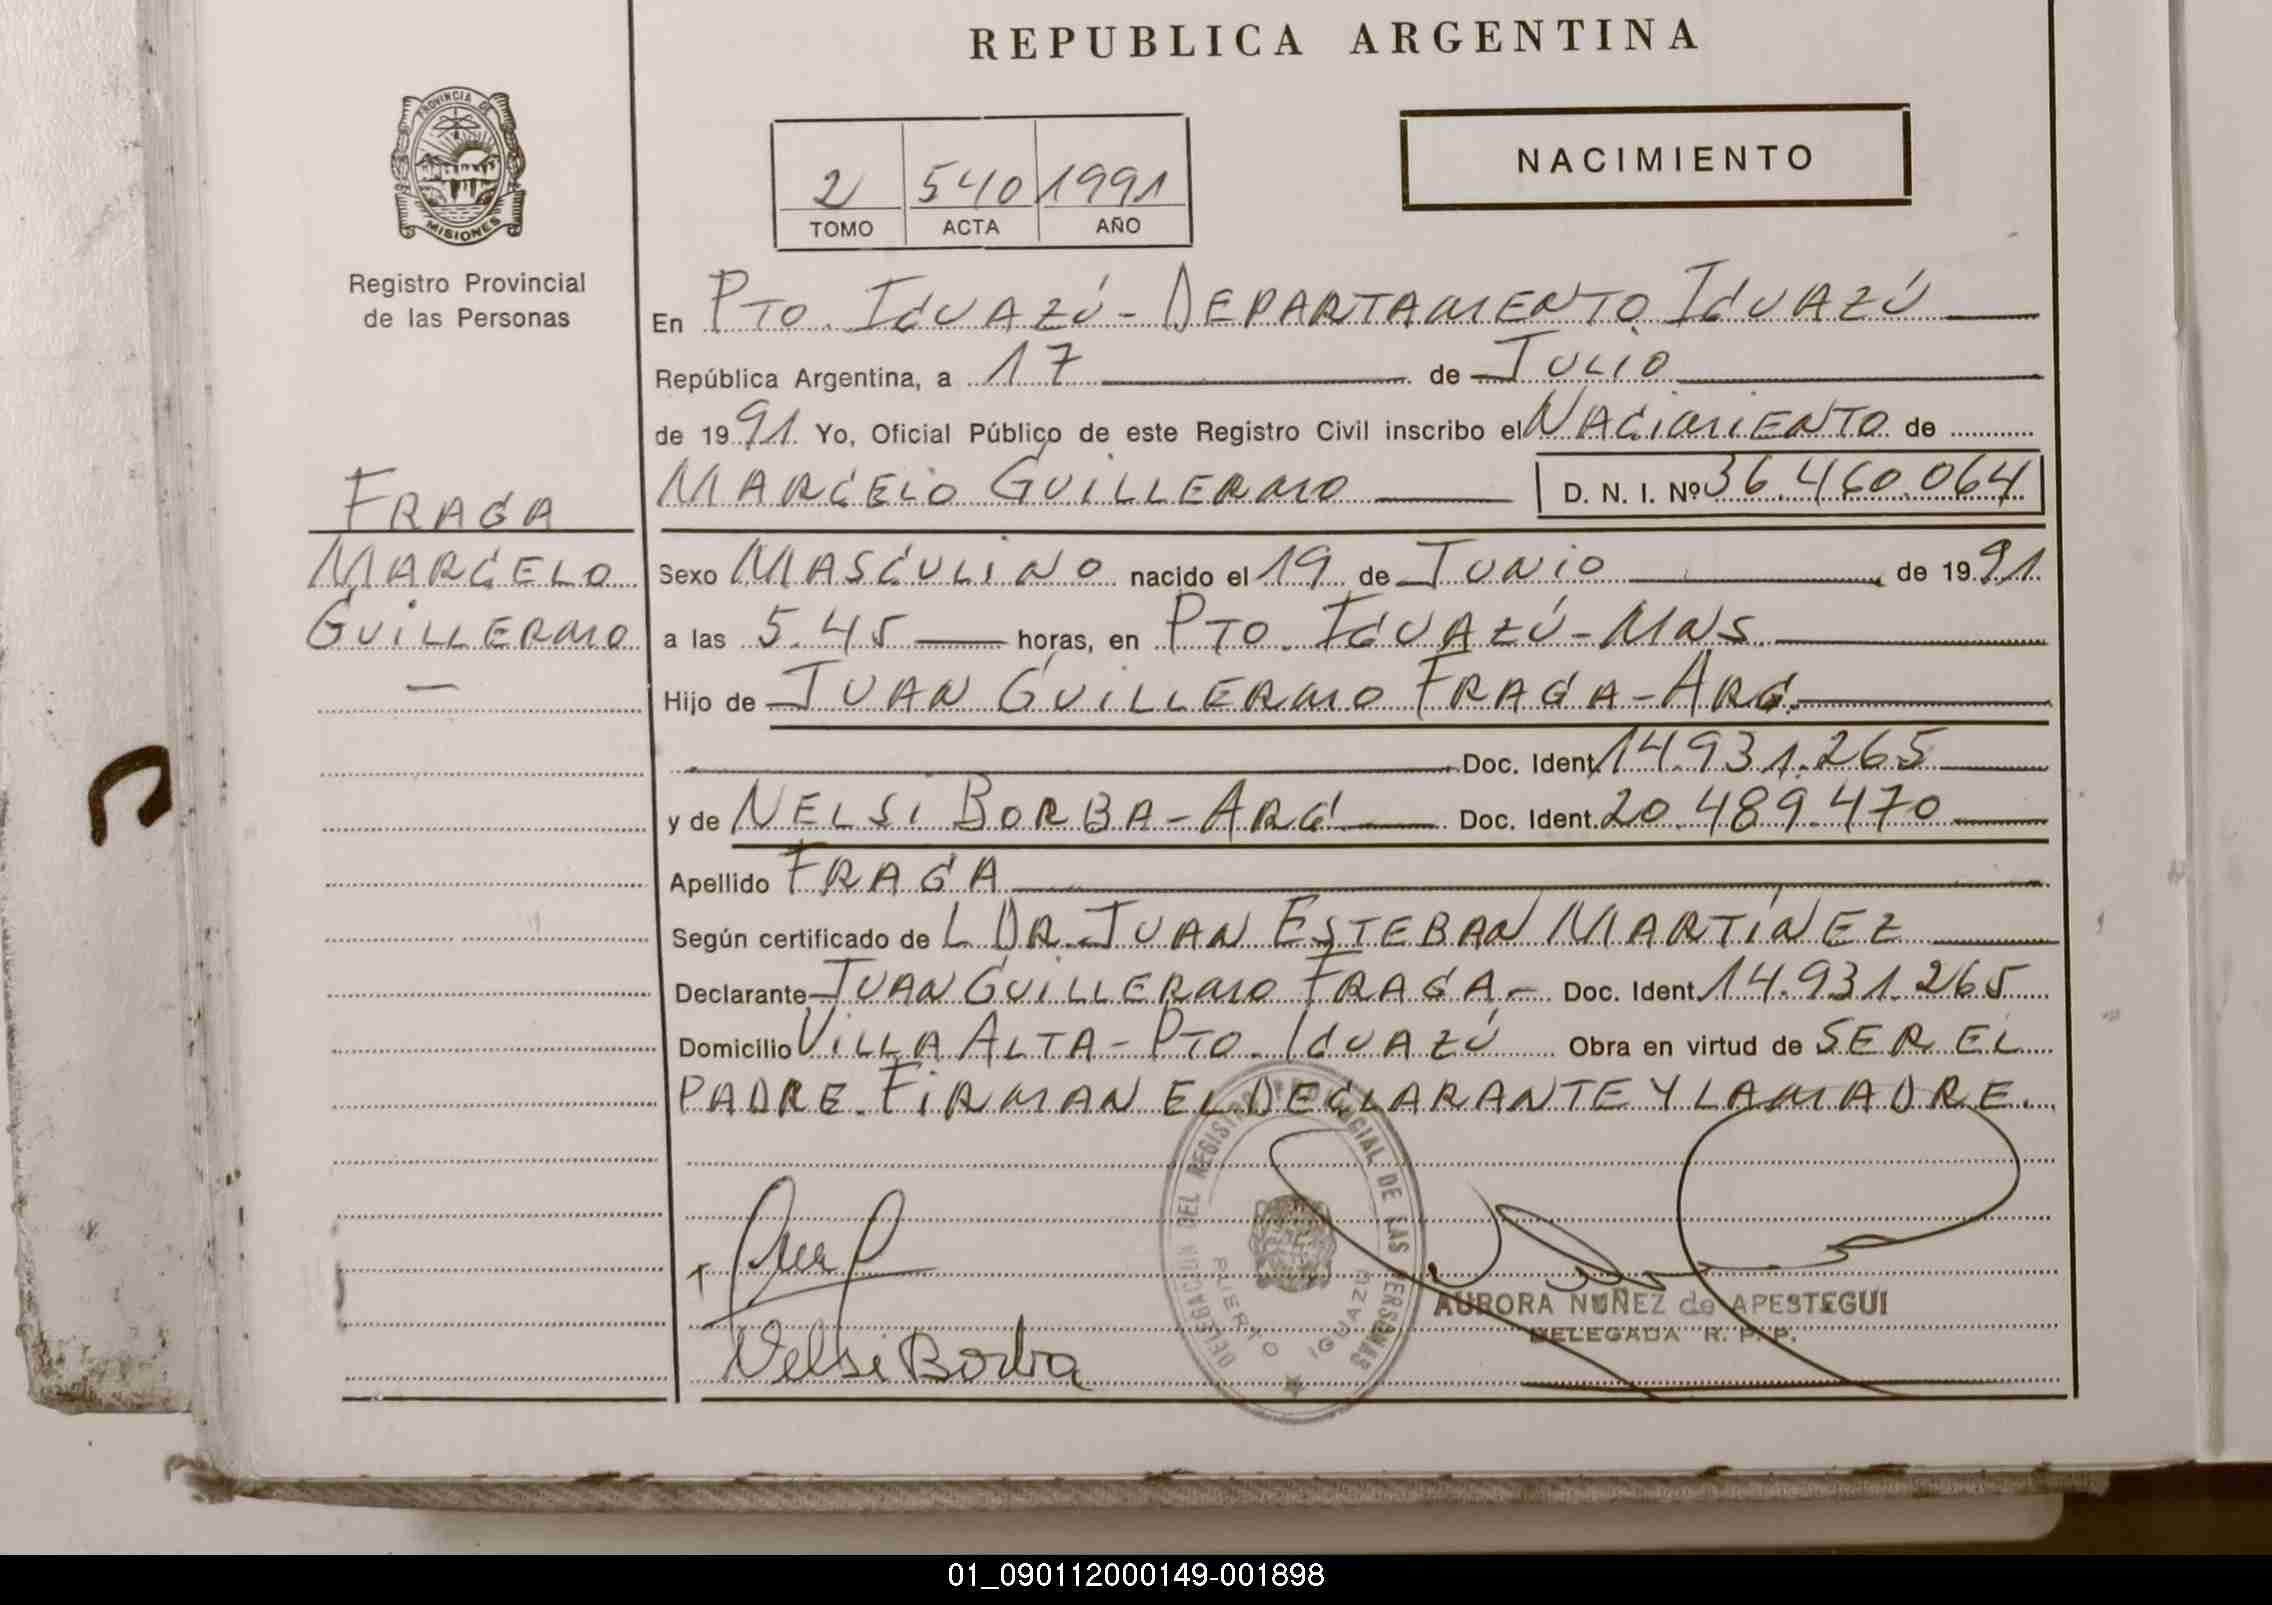 REPUBLICA ARGENTINA
PROVINCIA DE
MISIONES
Registro Provincial
de las Personas
NACIMIENTO
2 540 1991
TOMO ACTA AÑO
En PTO. IGUAZÚ - DEPARTAMENTO IGUAZÚ
República Argentina, a 17 de JULIO
de 1991 Yo, Oficial Público de este Registro Civil inscribo el NACIMIENTO de
MARCELO GUILLERMO D. N. I. Nº 36.460.064
FRAGA
MARCELO
GUILLERMO
Sexo MASCULINO nacido el 19 de JUNIO de 1991
a las 5.45 horas, en PTO. IGUAZÚ - MNS
Hijo de JUAN GUILLERMO FRAGA - ARG.
Doc. Ident. 14.931.265
y de NELSI BORBA - ARG Doc. Ident. 20.489.470
Apellido FRAGA
Según certificado de L DR. JUAN ESTEBAN MARTÍNEZ
Declarante JUAN GUILLERMO FRAGA.- Doc. Ident. 14.931.265
Domicilio VILLA ALTA - PTO. IGUAZÚ Obra en virtud de SER EL
PADRE. FIRMAN EL DECLARANTE Y LA MADRE.
DELEGACION DEL REGISTRO PROVINCIAL DE LAS PERSONAS
PUERTO IGUAZU
AURORA NUÑEZ de APESTEGUI
DELEGADA R. P. P.
Nelsi Borba
01_090112000149-001898